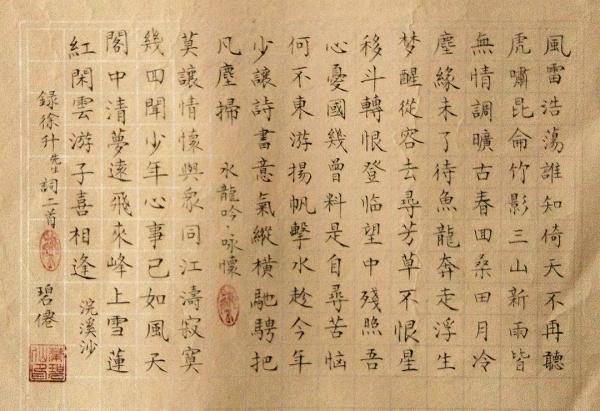 風雷浩蕩誰知倚天不再聽
虎嘯昆侖竹影三山新雨皆
無情調曠古春回桑田月冷
塵緣未了待魚龍奔走浮生
梦醒從容去尋芳草不恨星
移斗轉恨登临望中殘照吾
心憂國幾曾料是自尋苦恼
何不東游揚帆擊水趁今年
少讓詩書意氣縱横馳騁把
凡塵掃 水龍吟·咏懷
莫讓情懷與衆同江濤寂寞
幾四聞少年心事已如風天
閣中清夢遠飛來峰上雪蓮
紅閑雲游子喜相逢 浣溪沙
録徐升先生詞二首 碧僊